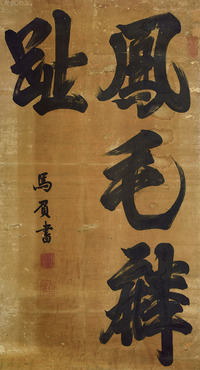 鳳毛麟
趾
馬負書